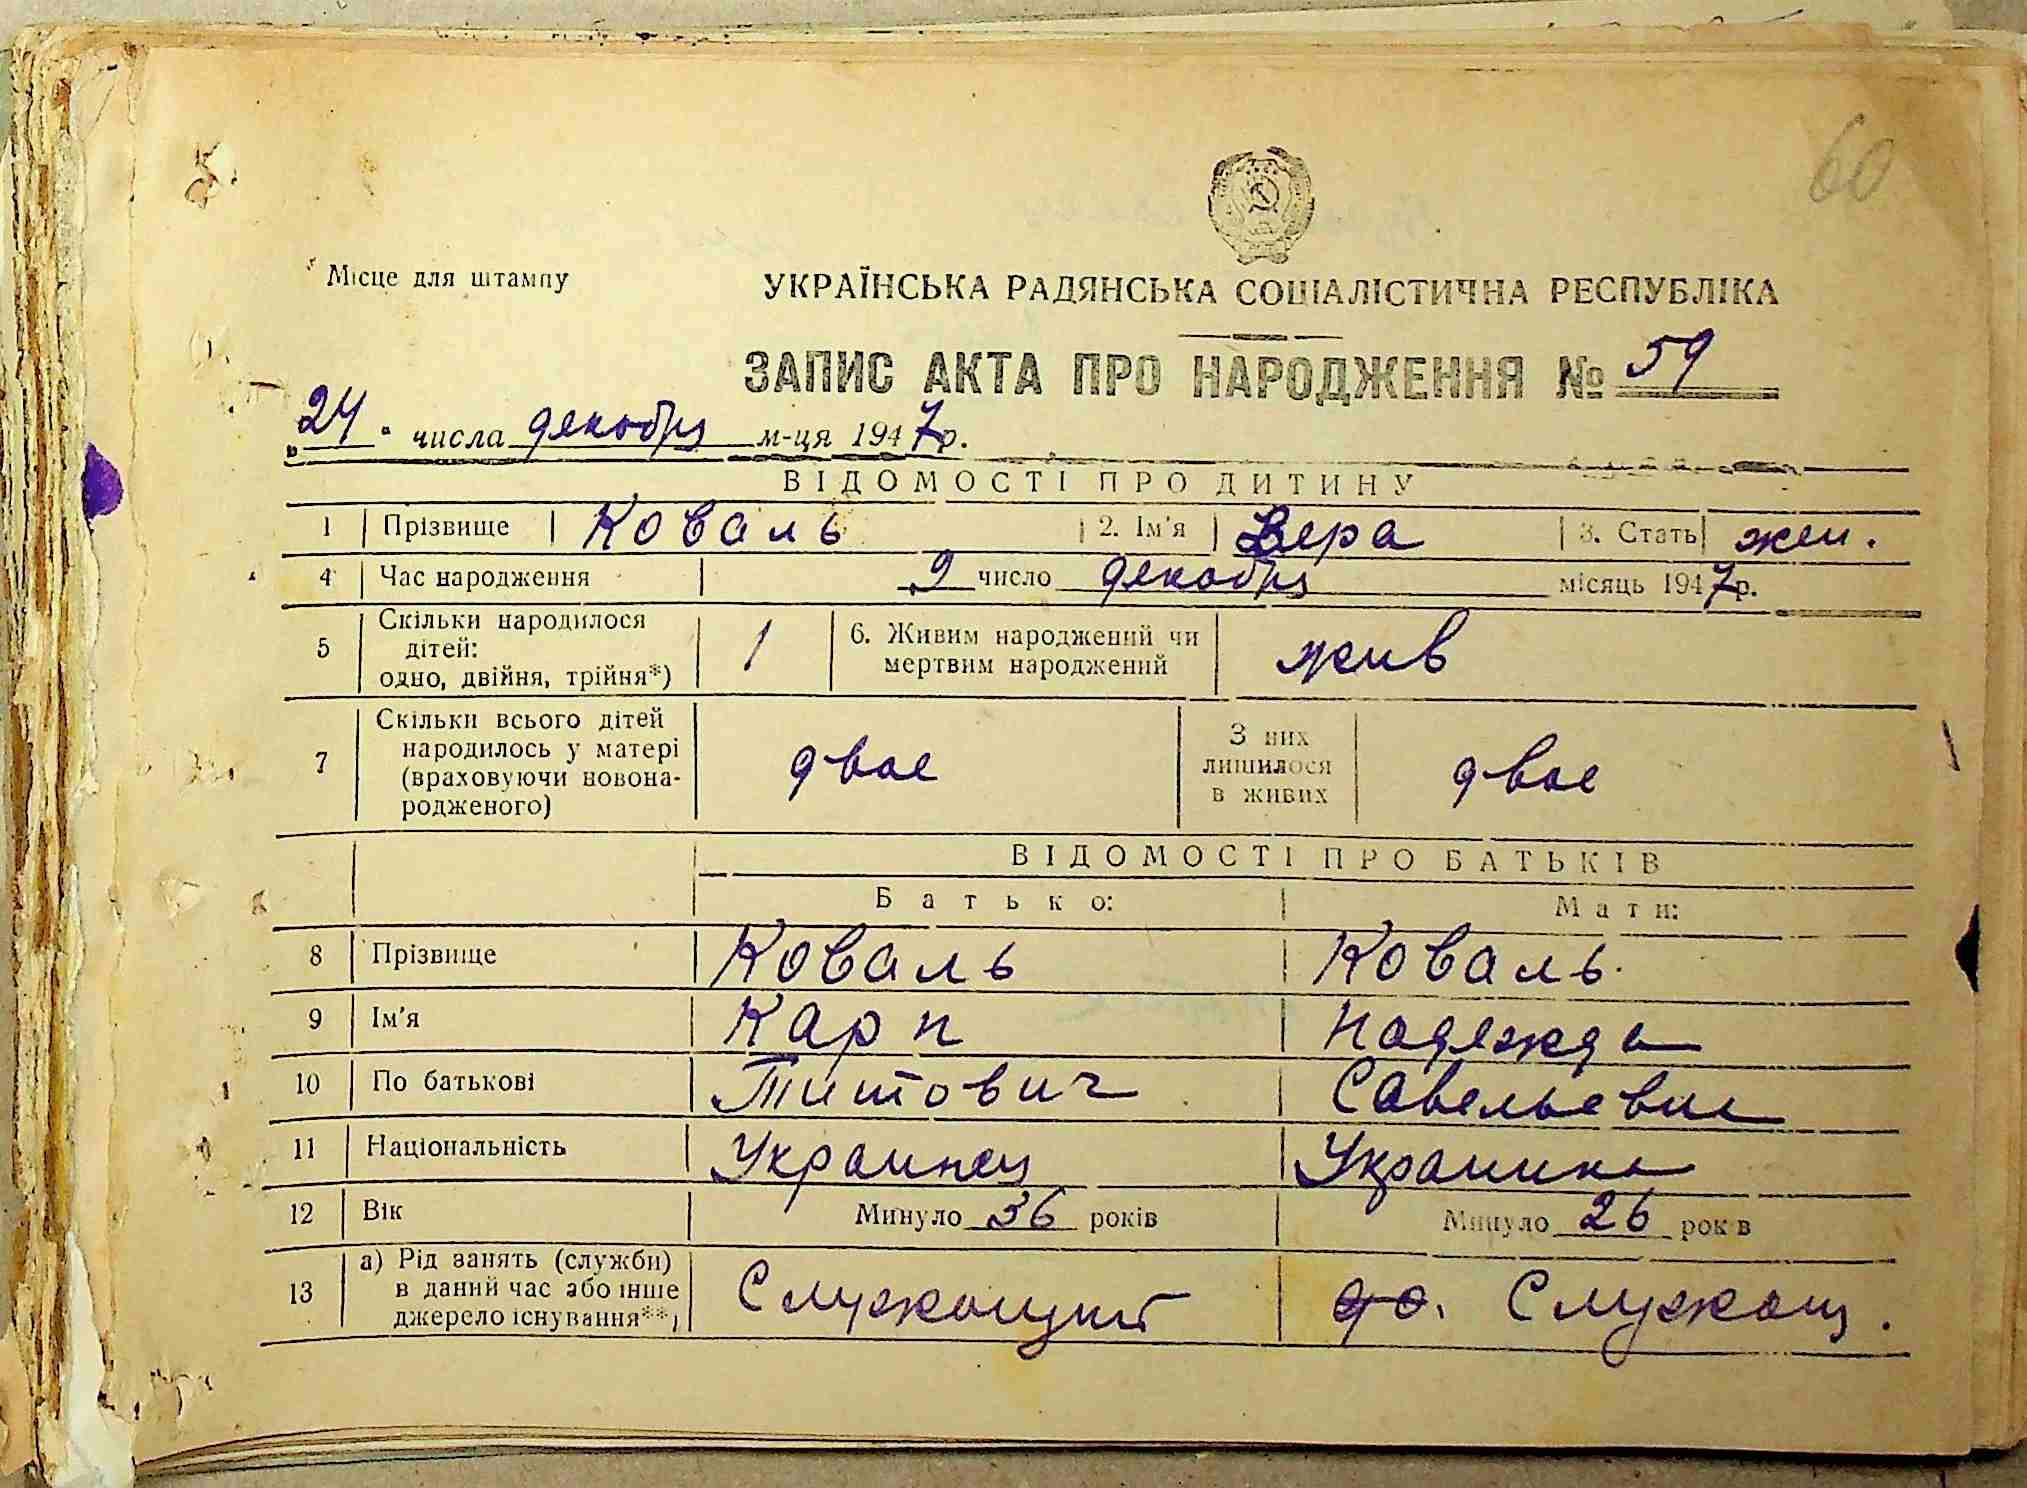 60
Місце для штампу
УКРАЇНСЬКА РАДЯНСЬКА СОЦІАЛІСТИЧНА РЕСПУБЛІКА
ЗАПИС АКТА ПРО НАРОДЖЕННЯ № 59
„24“ числа декабря м-ця 1947 р.
ВІДОМОСТІ ПРО ДИТИНУ
1 Прізвище Коваль 2. Ім'я Вера 3. Стать жен.
4 Час народження 9 число декабря місяць 1947 р.
5 Скільки народилося дітей: одно, двійня, трійня*) 1 6. Живим народжений чи мертвим народжений жив
7 Скільки всього дітей народилось у матері (враховуючи новонародженого) двое З них лишилося в живих двое
ВІДОМОСТІ ПРО БАТЬКІВ
Батько: Мати:
8 Прізвище Коваль Коваль.
9 Ім'я Карп Надежда
10 По батькові Титович Савельевна
11 Національність Украинец Украинка
12 Вік Минуло 36 років Минуло 26 років
13 а) Рід занять (служби) в даний час або інше джерело існування**) Служащий Служащ.